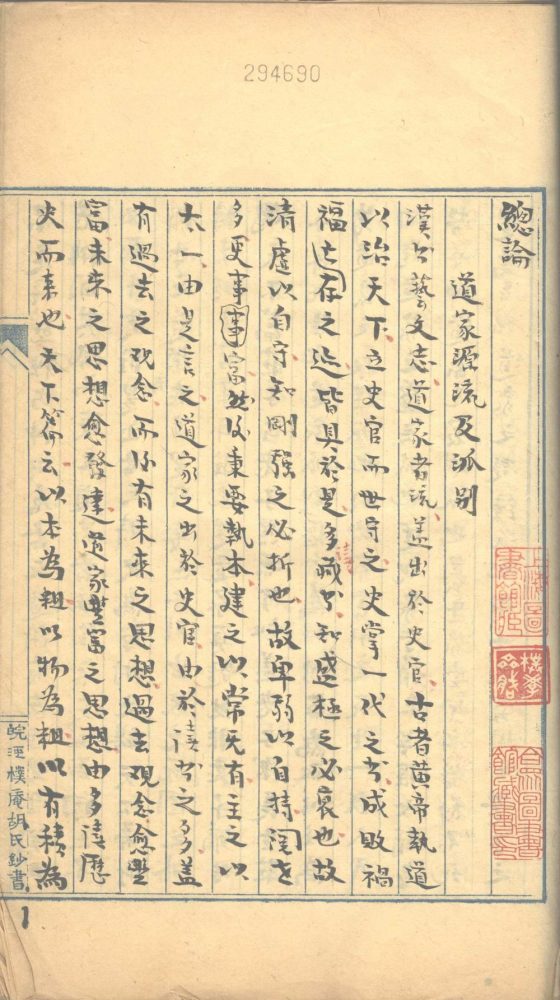 294690
總論
道家源流及派别
漢書藝文志道家者流蓋出於史官古者黄帝執道
以治天下立史官而世守之史掌一代之書成敗禍
福亡存之迹皆具於是多讀藏書知盛極之必衰也故
清虛以自守知剛强之必折也故卑弱以自持閱世
多更事事富然後秉要執本建之以常无有主之以
太一由是言之道家之出於史官由於讀書之多蓋
有過去之观念而後有未來之思想過去观念愈豐
富未來之思想愈發達道家豐富之思想由多讀歷
史而來也天下篇云以本為粗以物為粗以有積為
皖涇樸庵胡氏鈔書
1
上海圖書館
圖書館藏書